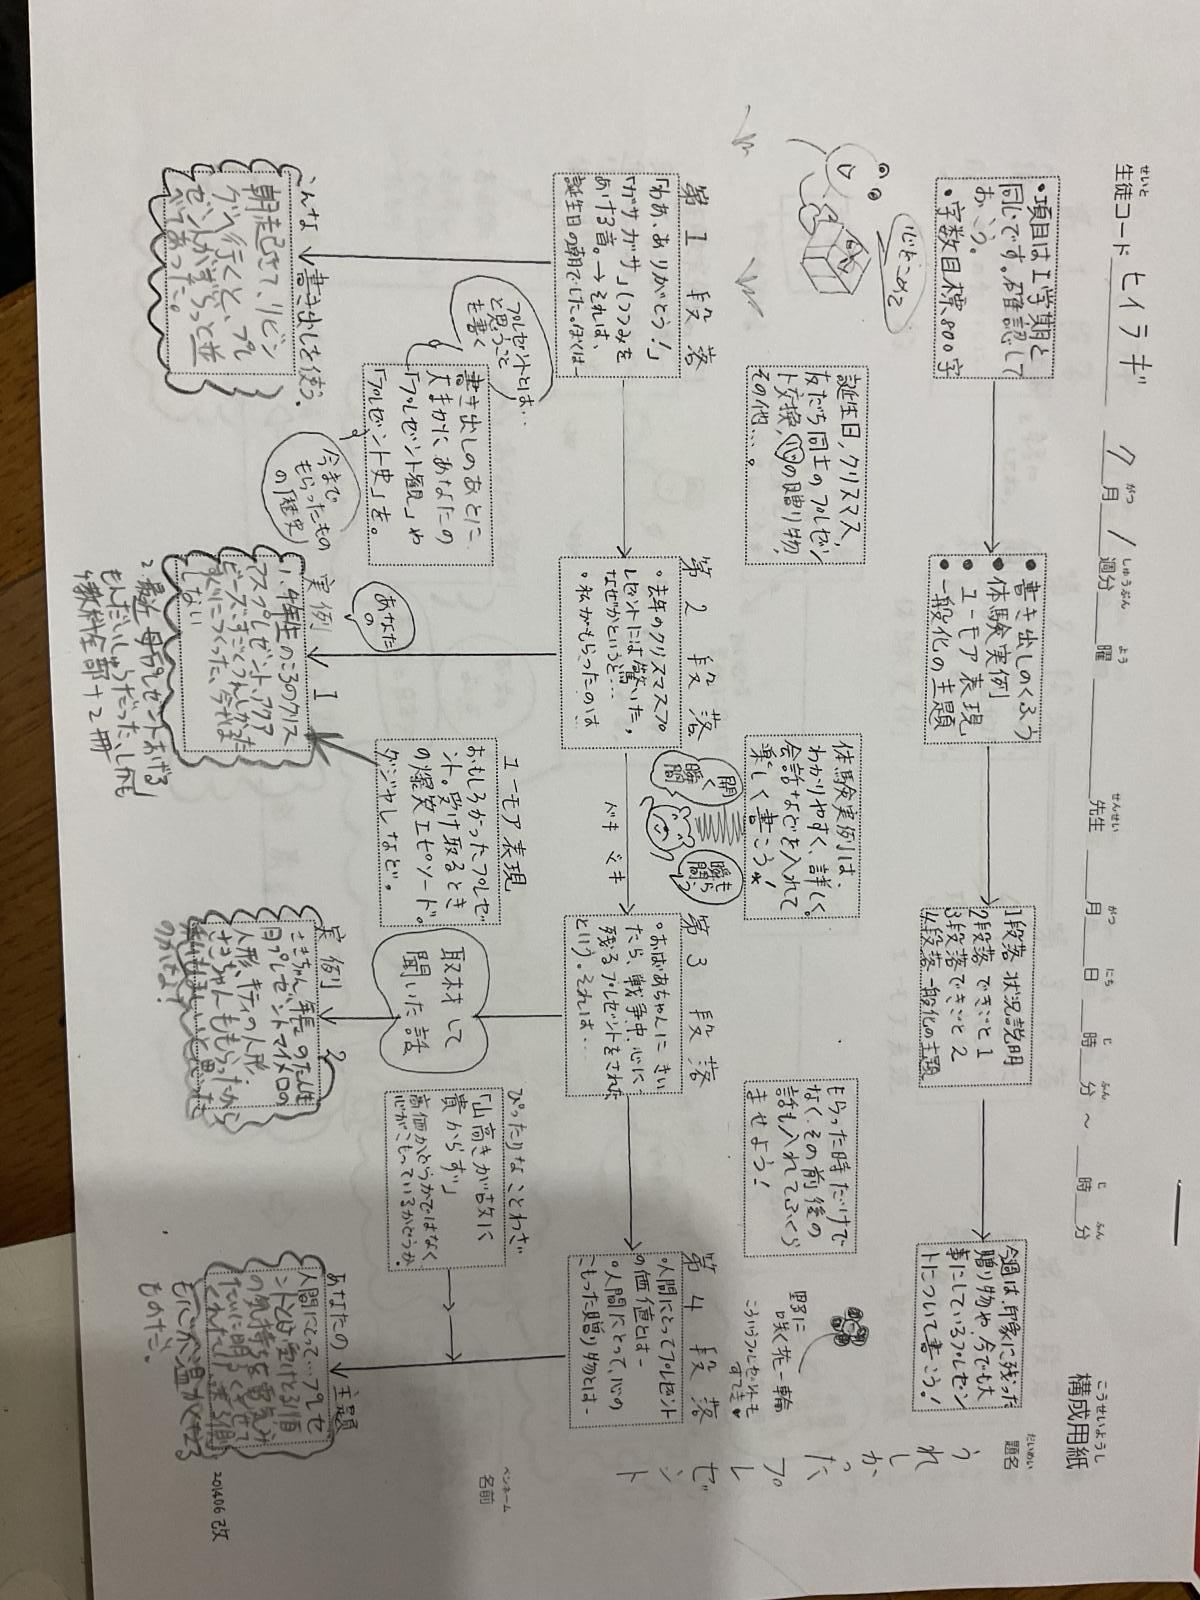 構成用紙
こうせいようし
題名
だいめい
うれしかったプレゼント
ペンネーム
名前
生徒コード ヒイラギ 7月1週分 曜 先生 月 日 時 分 ~ 時 分
せいと がつ しゅうぶん よう せんせい がつ にち じ ふん じ ふん
・項目は1学期と
同じです。確認して
おこう。
・字数目標800字
・書き出しのくふう
・体験実例
・ユーモア表現
・一般化の主題
1段落 状況説明
2段落 できごと1
3段落 できごと2
4段落 一般化の主題
今週は、印象に残った
贈り物や、今でも大
事にしているプレゼン
トについて書こう!
心をこめて
誕生日、クリスマス、
友だち同士のプレゼン
ト交換、心の贈り物、
その他…。
体験実例は、
わかりやすく、詳しく。
会話などを入れて
楽しく書こう☆
もらった時だけで
なく、その前後の
話も入れてふくら
ませよう!
野に
咲く花一輪
こういうプレゼントも
すてき
第1段落
「わあ、ありがとう!」
「ガサガサ」(つつみを
あける音。→それは、
誕生日の朝でした。ぼくは―
第2段落
。去年のクリスマスプ
レゼントには驚いた。
なぜかというと…
。私がもらったのは
ドキドキ
第3段落
。おばあちゃんにきい
たら、戦争中、心に
残るプレゼントをされた
という。それは…
第4段落
。人間にとってプレゼント
の価値とは―
。人間にとって、心の
こもった贈り物とは―
プレゼントとは…
と思うこと
を書く
書き出しのあとに
大まかにあなたの
「プレゼント観」や
「プレゼント史」を。
今まで
もらったもの
の「歴史」
あなた
の
ユーモア表現
おもしろかったプレゼ
ント。受け取るとき
の爆笑エピソード。
ダジャレなど。
取材して
聞いた話
ぴったりなことわざ
「山高きが故に
貴からず」
高価かどうかではなく
心がこもっているかどうか。
こんな書き出しを使う。
朝起きて、リビン
グへ行くと、プレ
ゼントがずらっと並
べてあった。
実例1
1、4年生のころのクリス
マスプレゼント、アクア
ビーズ、すごくうれしかった
すぐにつくった、今はま
しない
2最近 母「プレゼントあげる」
もんだいしゅうだった、しかも
4教科全部+2冊
実例2
さきちゃん 年長 のたん生
日プレゼント マイメロの
人形 キティの人形
さきちゃんももらったから
あなたの主題
人間にとって…プレゼ
ントとは受けとる側
の気持ちを電気み
たいに明るくさせて
くれたり、
ものだ。
201406改